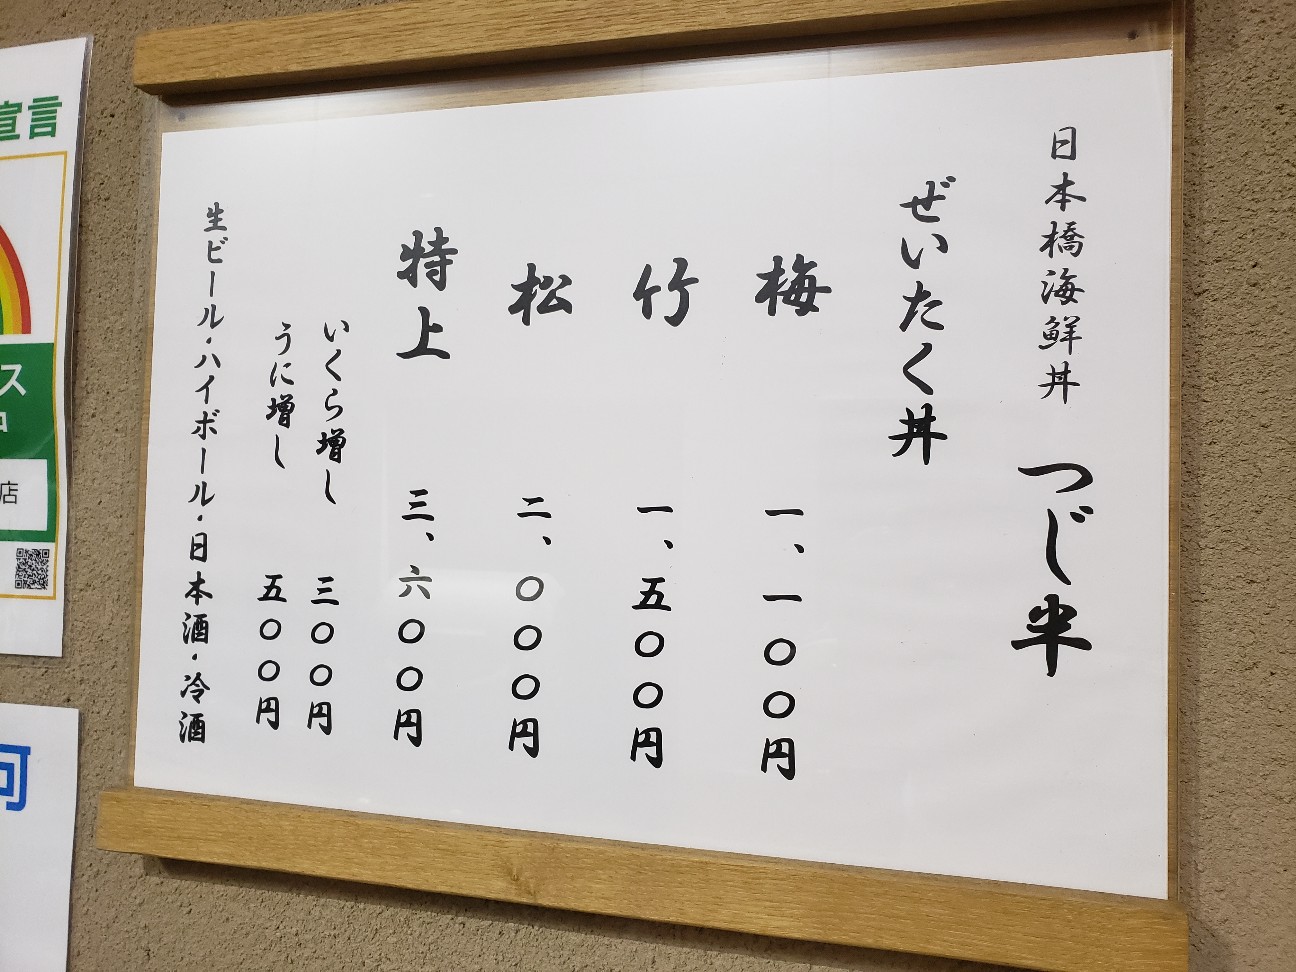 日本橋海鮮丼 つじ半
ぜいたく丼
梅 一、一〇〇円
竹 一、五〇〇円
松 二、〇〇〇円
特上 三、六〇〇円
いくら増し 三〇〇円
うに増し 五〇〇円
生ビール・ハイボール・日本酒・冷酒
宣言
ス
店
可